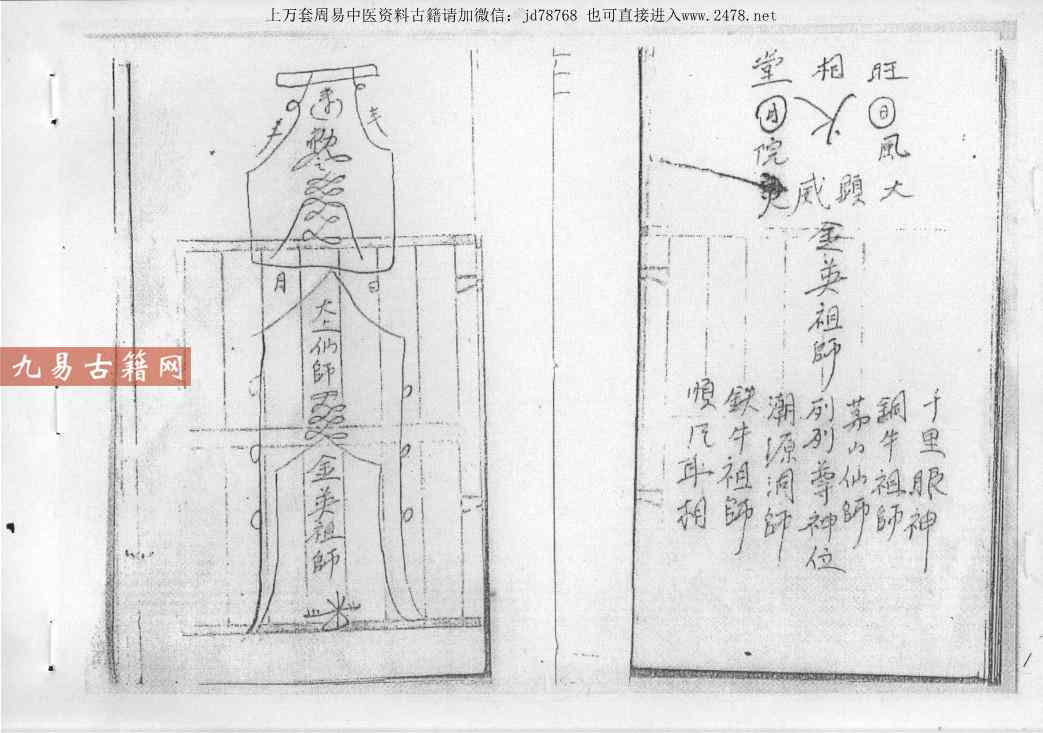 上万套周易中医资料古籍请加微信：jd78768 也可直接进入www.2478.net
旺
相
堂
日
月
風
火
院
大
顯
威
金英祖師列列尊神位
千里眼神
銅牛祖師
茅山仙師
潮源洞師
鉄牛祖師
順风耳
勅
令
日
月
太上仙師
金英祖師
九易古籍网